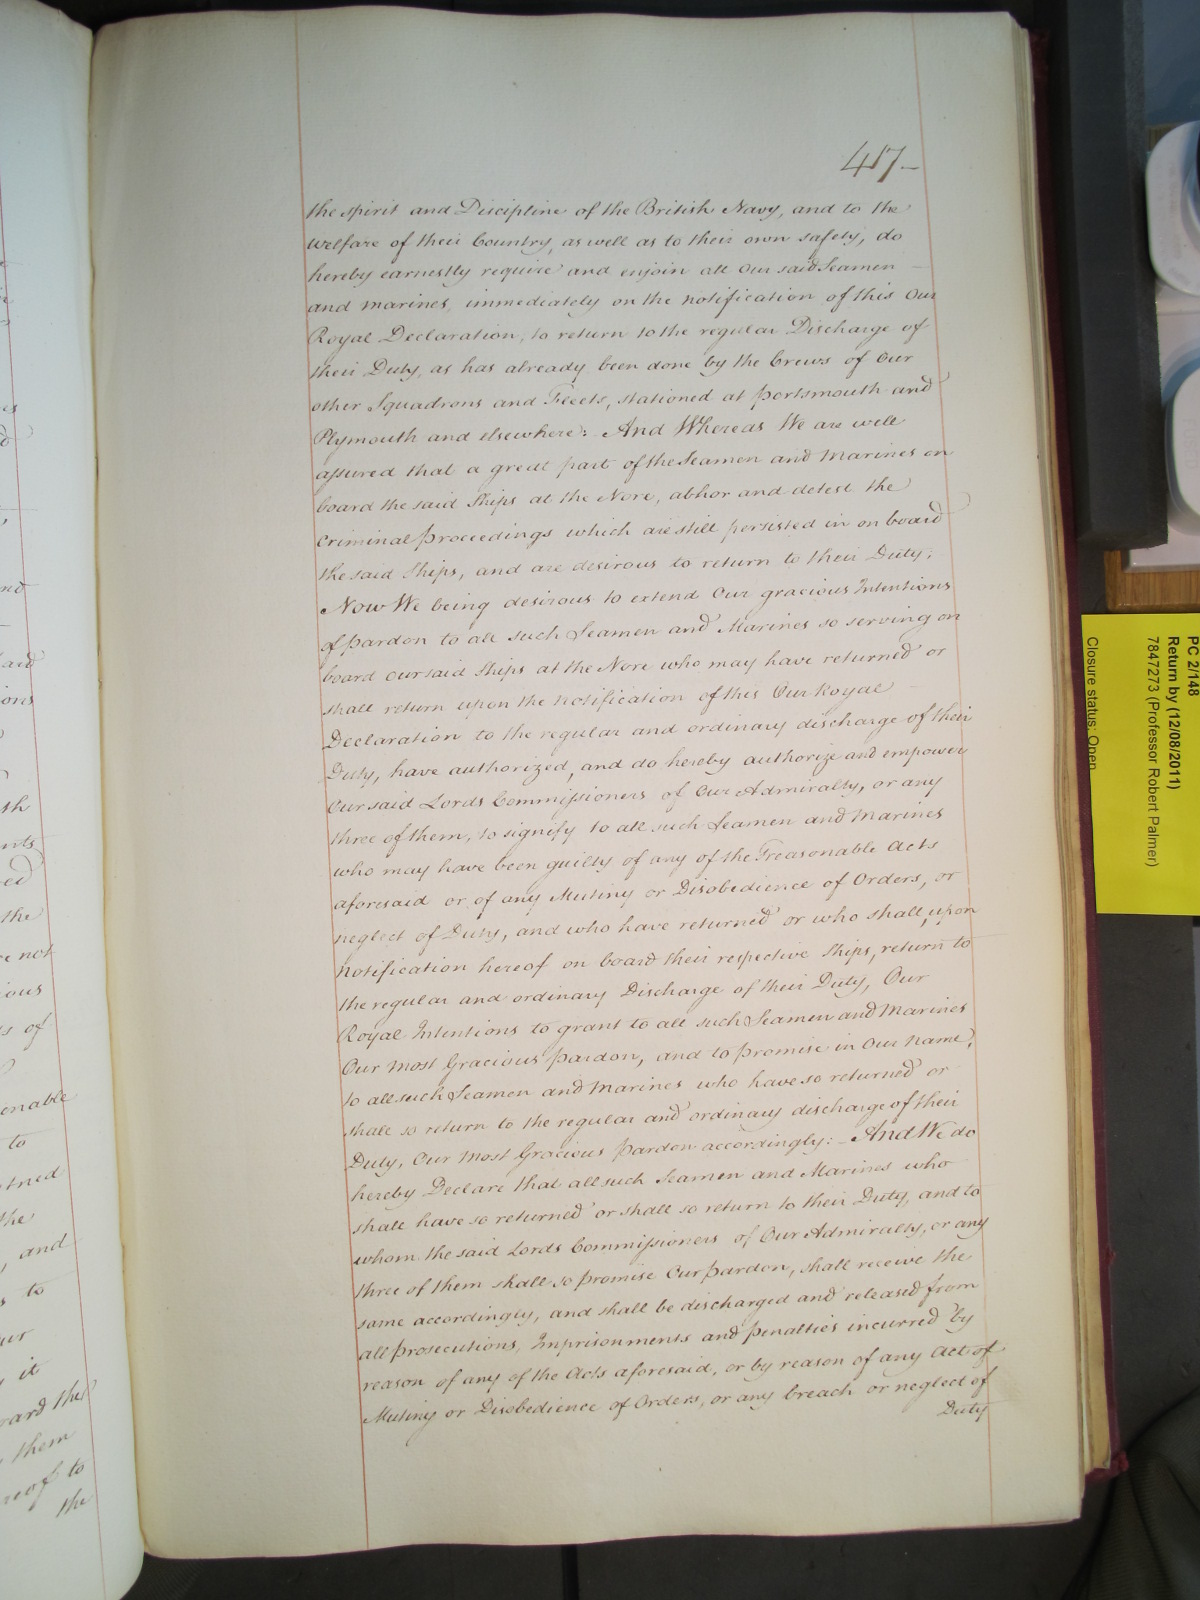 417-
the spirit and Discipline of the British Navy, and to the
welfare of their Country, as well as to their own safety, do
hereby earnestly require and enjoin all our said Seamen
and marines, immediately on the notification of this Our
Royal Declaration, to return to the regular Discharge of
their Duty, as has already been done by the Crews of Our
other Squadrons and Fleets, stationed at portsmouth and
Plymouth and elsewhere: And Whereas We are well
assured that a great part of the Seamen and Marines on
board the said Ships at the Nore, abhor and detest the
criminal proceedings which are still persisted in on board
the said Ships, and are desirous to return to their Duty;
Now We being desirous to extend Our gracious Intentions
of pardon to all such Seamen and Marines so serving on
board our said Ships at the Nore who may have returned or
shall return upon the notification of this Our Royal
Declaration to the regular and ordinary discharge of their
Duty, have authorized, and do hereby authorize and empower
Our said Lords Commissioners of Our Admiralty, or any
three of them, to signify to all such Seamen and Marines
who may have been guilty of any of the Treasonable Acts
aforesaid or of any Mutiny or Disobedience of Orders, or
neglect of Duty, and who have returned or who shall, upon
notification hereof on board their respective Ships, return to
the regular and ordinary Discharge of their Duty, Our
Royal Intentions to grant to all such Seamen and Marines
Our most Gracious pardon, and to promise in Our name,
to all such Seamen and Marines who have so returned or
shall so return to the regular and ordinary discharge of their
Duty, Our most Gracious pardon accordingly:- And We do
hereby Declare that all such Seamen and Marines who
shall have so returned or shall so return to their Duty, and to
whom the said Lords Commissioners of Our Admiralty, or any
three of them shall so promise Our pardon, shall receive the
same accordingly, and shall be discharged and released from
all prosecutions, Imprisonments and penalties incurred by
reason of any of the Acts aforesaid, or by reason of any Act of
Mutiny or Disobedience of Orders, or any breach or neglect of
Duty
PC 2/148
Return by (12/08/2011)
7847273 (Professor Robert Palmer)
Closure status: Open